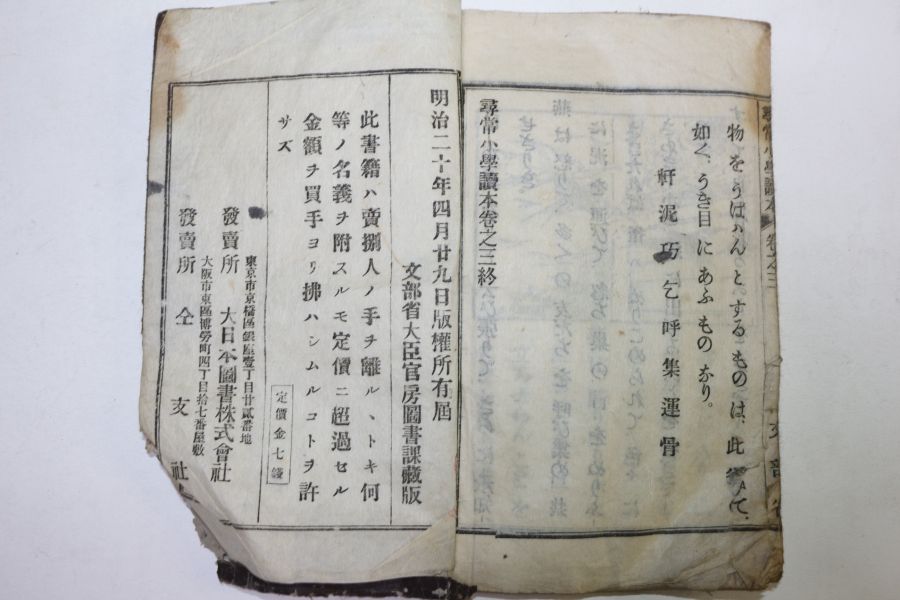 尋常小學讀本 卷之三
物をうばゝんとするものは、此
て、
如く、うき目にあふものなり。
軒泥巧乞呼集運骨
尋常小學讀本卷之三終
明治二十年四月廿九日版權所有屆
文部省大臣官房圖書課藏版
此書籍ハ賣捌人ノ手ヲ離ルヽトキ何
等ノ名義ヲ附スルモ定價ニ超過セル
金額ヲ買手ヨリ拂ハシムルコトヲ許
サズ
定價金七錢
東京市京橋區銀座壹丁目廿貳番地
發賣所 大日本圖書株式會社
大阪市東區博勞町四丁目拾七番屋敷
發賣所 仝 支社